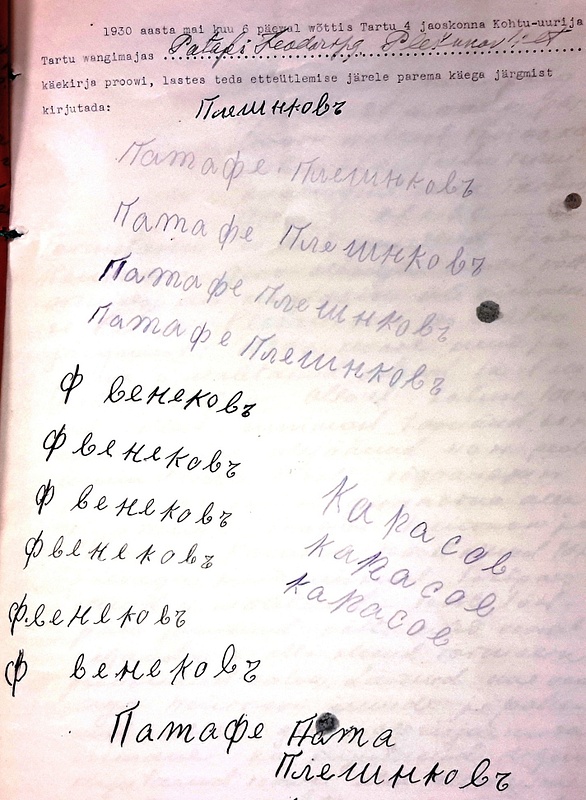 1930 aasta mai kuu 6 päewal wõttis Tartu 4 jaoskonna Kohtu-uurija
Tartu wangimajas Patapi Feodori pg.
käekirja proowi, lastes teda etteütlemise järele parema käega järgmist
kirjutada:
Плешнковъ
Патафе Плешнковъ
Патафе Плешнковъ
Патафе Плешнковъ
Патафе Плешнковъ
Ф венековъ
Ф венековъ
Ф венековъ
Ф венековъ
Ф.венековъ
Ф венековъ
Карасов
карасов
карасов
Патафе Пата
Плешнковъ